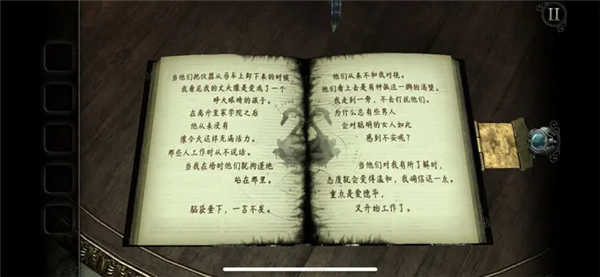 当他们把仪器从马车上卸下来的时候
我看见我的丈夫像是变成了一个
睁大眼睛的孩子。
在离开皇家学院之后
他从来没有
像今天这样充满活力。
那些人工作时从不说话。
当我在场时他们就拘谨地
站在那里。
脑袋垂下，一言不发。
他们从来不和我对视。
他们看上去是有种佩远一脚的渴望。
我走到一旁，不去打扰他们。
为什么总有些男人
会对聪明的女人如此
感到不安呢？
当他们对我有所了解时，
态度就会变得温和，我确信这一点。
重点是爱德华，
又开始工作了。